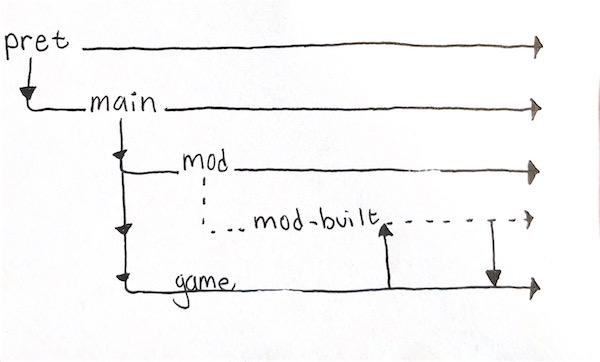 pret
main
mod
mod-built
game